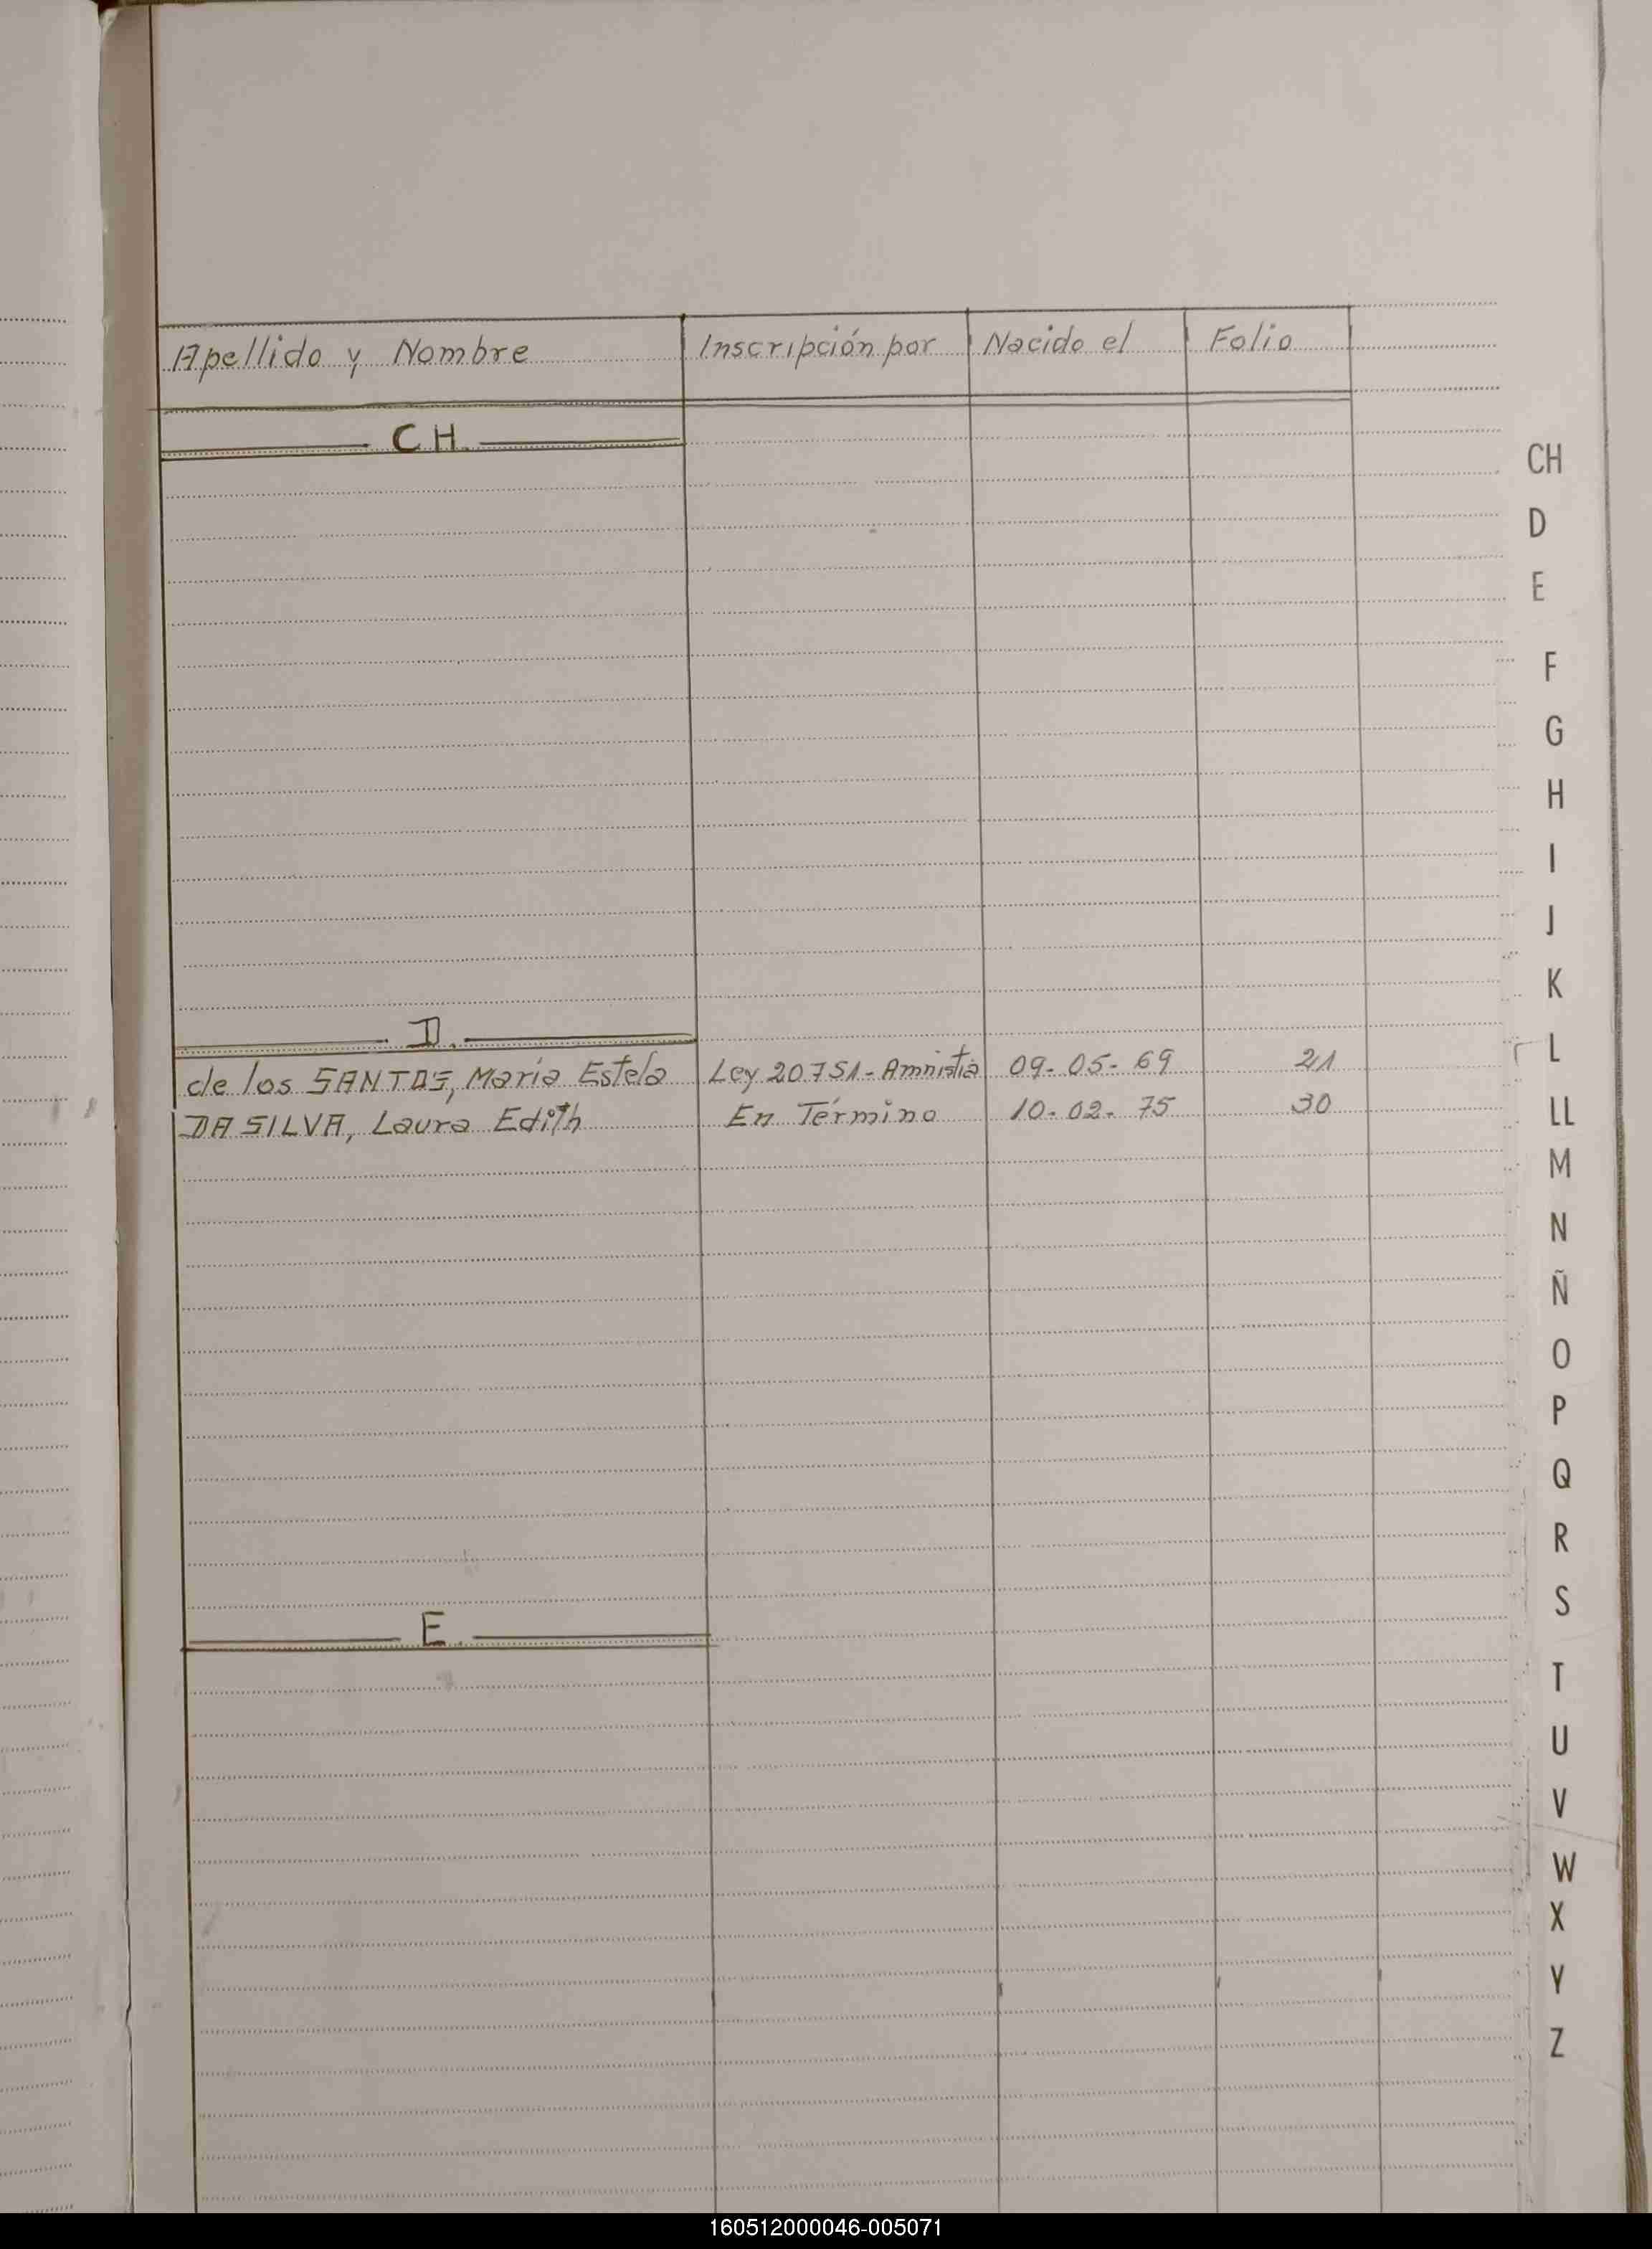 Apellido y Nombre Inscripción por Nacido el Folio
CH.
D.
de los SANTOS, María Estela Ley 20.751-Amnistia 09-05-69 21
DA SILVA, Laura Edith En Término 10-02-75 30
E.
CH
D
E
F
G
H
I
J
K
L
LL
M
N
Ñ
O
P
Q
R
S
T
U
V
W
X
Y
Z
160512000046-005071